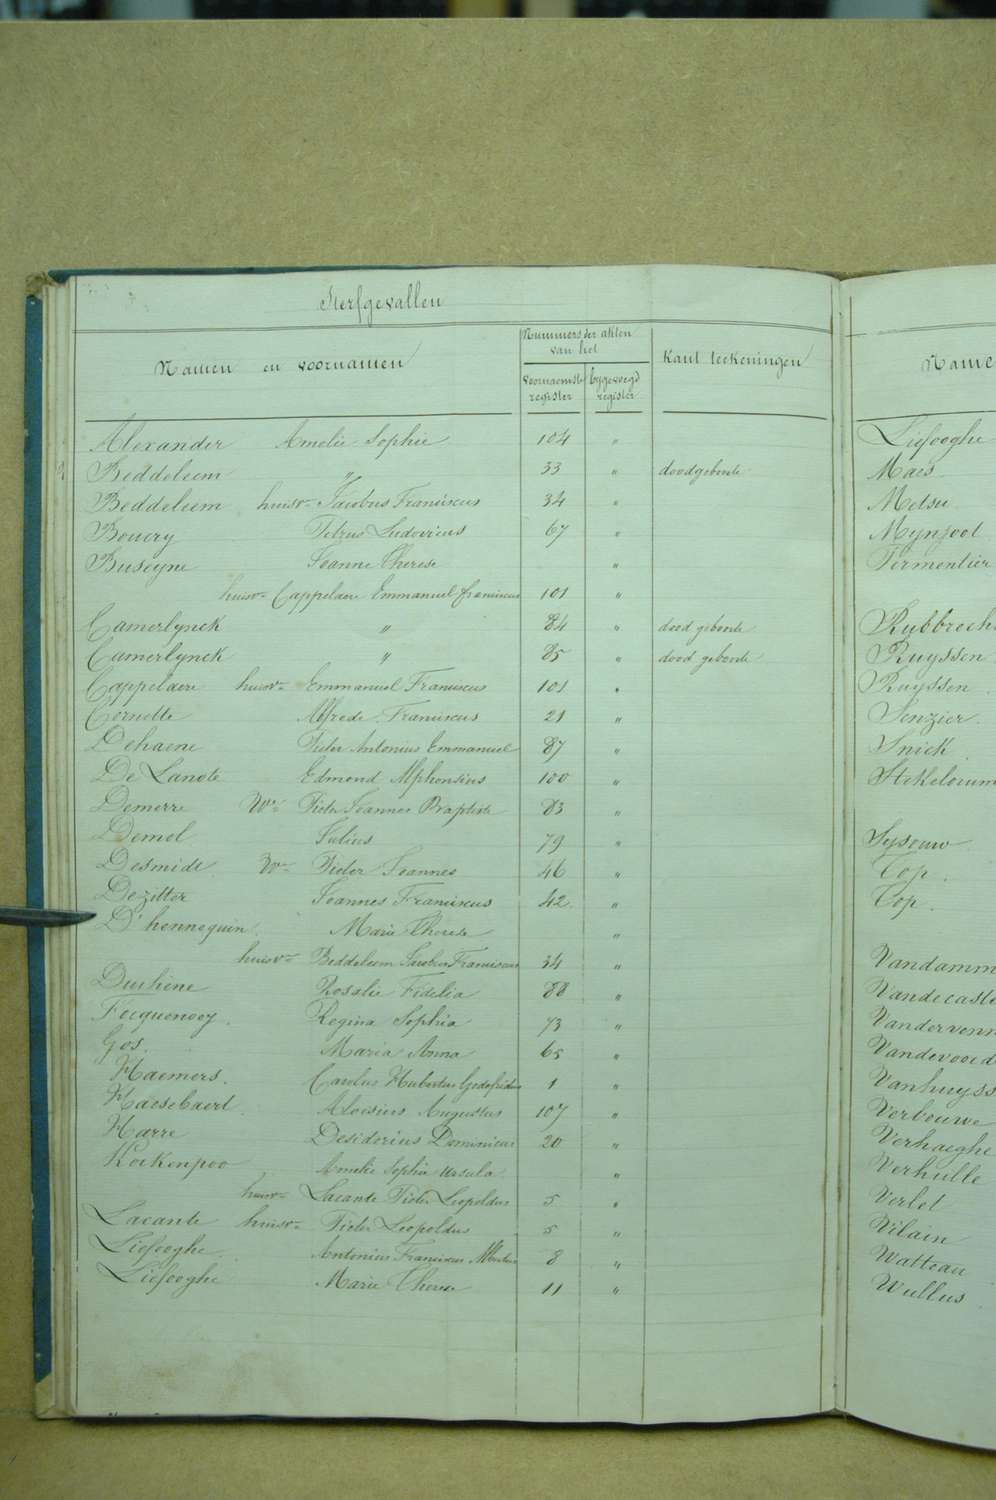 Sterfgevallen
Namen en voornamen
Nummers der akten van het
voornaemste register
bygevoegd register
Kant teekeningen
Alexander Amelie Sophie 104 "
Beddeleem " 33 " doodgeboorte
Beddeleem huisv= Jacobus Franciscus 34 "
Bouery Petrus Ludovicus 67 "
Buseyne Joanne Therese "
huisv= Cappelaere Emmanuel franciscus 101 "
Camerlynck " 84 " dood geboorte
Camerlynck " 85 " dood geboorte
Cappelaere huisv= Emmanuel Franciscus 101 "
Cornette Alfrede Franciscus 21 "
Dehaene Pieter Antonius Emmanuel 87 "
De Lanote Edmond Alphonsius 100 "
Demerre We= Pieter Joannes Baptiste 83 "
Demol Julius 79 "
Desmidt We= Pieter Joannes 46 "
Dezitter Joannes Franciscus 42 "
D'hennequin Marie Therese "
huisv= Beddeleem Jacobus Franciscus 34 "
Duchène Rosalie Fidelia 88 "
Fecquenoey Regina Sophia 73 "
Gos Maria Anna 65 "
Haemers Carolus Hubertus Godefridus 1 "
Haesebaert Aloisius Augustus 107 "
Harre Desiderius Dominicus 20 "
Koekenpoo Amelie Sophie Ursula "
huisv= Lacante Pieter Leopoldus 5 "
Lacante huisv= Pieter Leopoldus 5 "
Liefooghe Antonius Franciscus 8 "
Liefooghe Marie Therese 11 "
Name
Liefooghe
Maes
Metsu
Mynjoot
Permentier
Rubbrech
Ruyssen
Ruyssen
Senzier
Snick
Stekelorum
Sysouw
Top
Top
Vandamm
Vandecaste
Vandervenn
Vandevoord
Vanhuyss
Verbouwe
Verhaeghe
Verhille
Verlet
Vilain
Watteau
Wullus